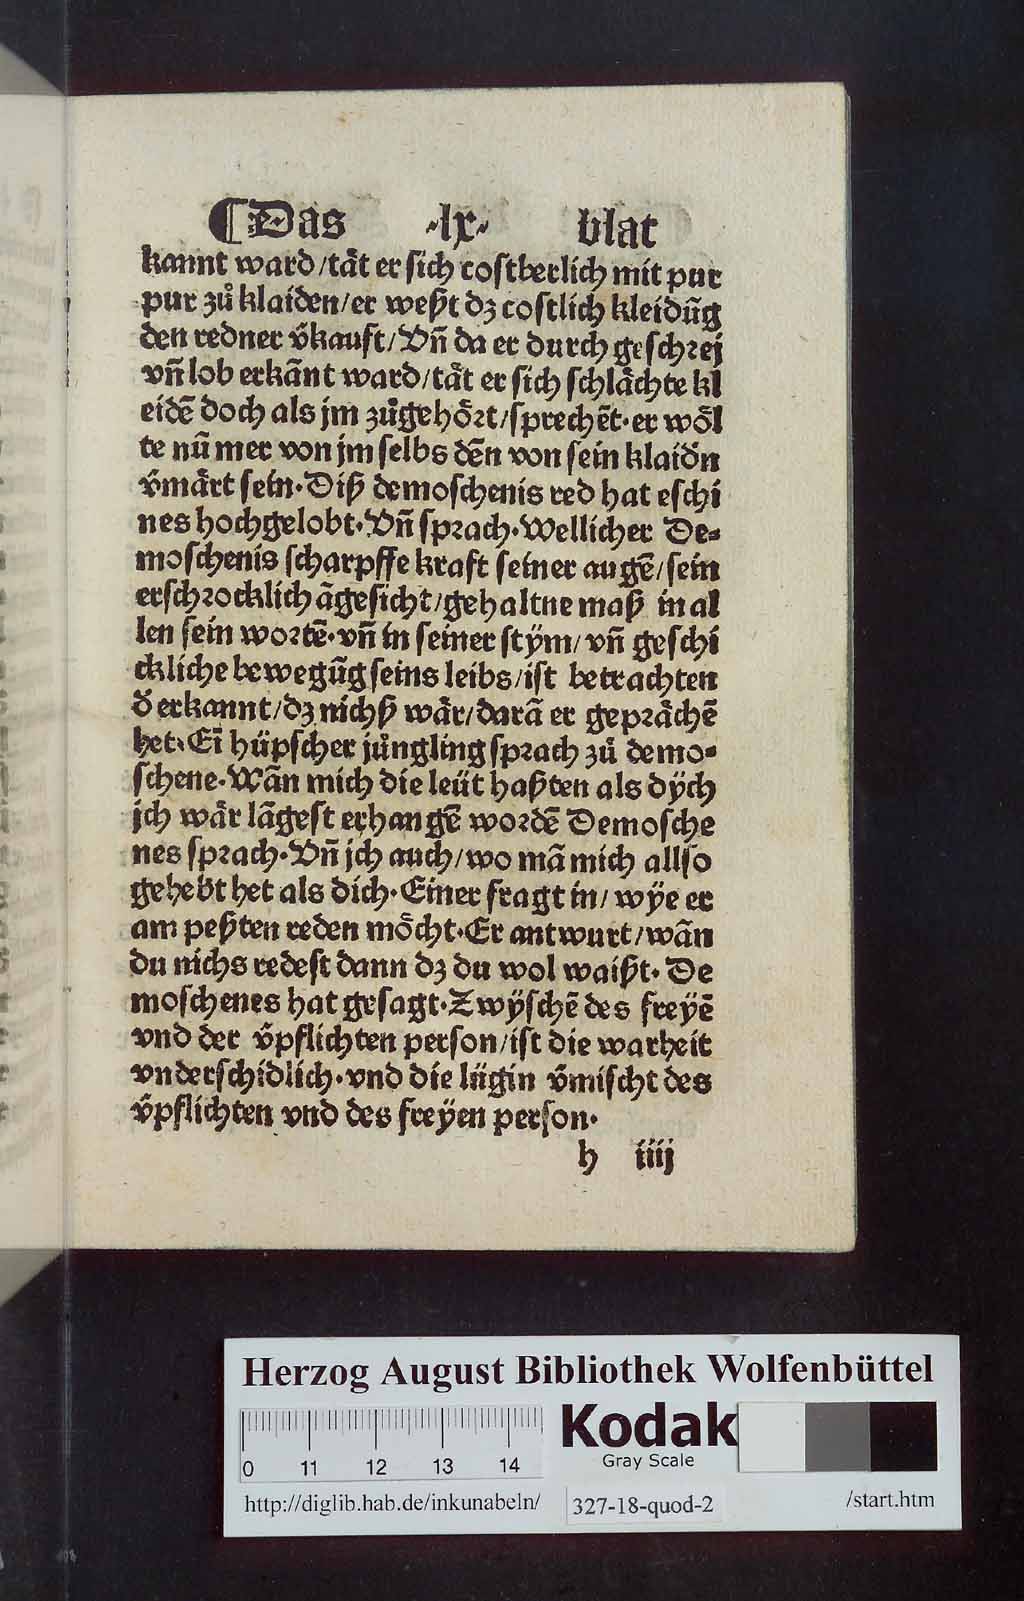 ¶Das ·lx· blat
kannt ward/tåt er sich costberlich mit pur
pur zů klaiden/er weßt dz costlich kleidūg
den redner v̄kauft/Vn̄ da er durch geschrej
vn̄ lob erkānt ward/tåt er sich schlåchte kl
eidē doch als jm zůgehört/sprechēt·er wöl
te nūmer von jm selbs dēn von sein klaidn̄
v̄mårt sein·Diß demoschenis red hat eschi
nes hochgelobt·Vn̄ sprach·Wellicher De⸗
moschenis scharpffe kraft seiner augē/sein
erschrocklich āgesicht/gehaltne maß in al
len sein wortē·vn̄ in seiner stÿm/vn̄ geschi
ckliche bewegūg seins leibs/ist betrachten
d̄ erkannt/dz nichß wår/darā er gepråchē
het·Ein̄ hüpscher jůngling sprach zů demo⸗
schene·Wān mich die leüt haßten als dÿch
jch wår lāgest erhangē wordē Demosche
nes sprach·Vn̄ jch auch/wo mā mich allso
gehebt het als dich·Einer fragt in/wÿe er
am peßten reden möcht·Er antwurt/wān
du nichs redest dann dz du wol waißt·De
moschenes hat gesagt·Zwÿschē des freÿē
vnd der v̄pflichten person/ist die warheit
vnderschidlich·vnd die lügin v̄mischt des
v̄pflichten vnd des freÿen person·
h iiij
Herzog August Bibliothek Wolfenbüttel
Kodak
Gray Scale
0 11 12 13 14
http://diglib.hab.de/inkunabeln/ 327-18-quod-2 /start.htm